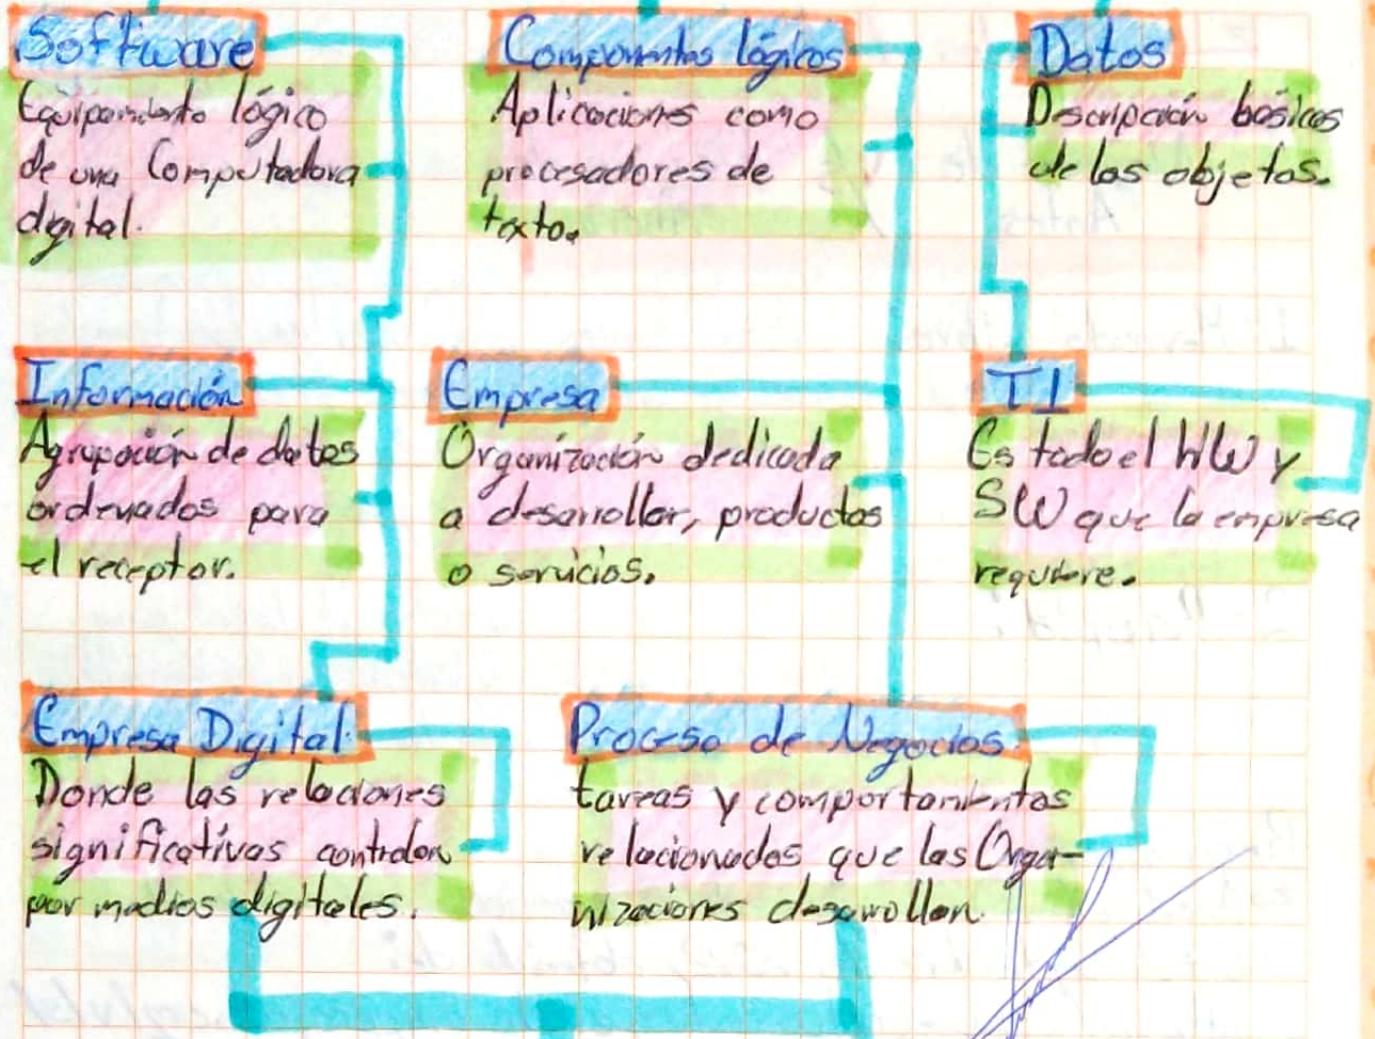 Software
Equipamiento lógico
de una Computadora
digital.
Componentes lógicos
Aplicaciones como
procesadores de
texto.
Datos
Descripción básicas
de los objetos.
Información
Agrupación de datos
ordenados para
el receptor.
Empresa
Organización dedicada
a desarrollar, productos
o servicios.
TI
Es todo el HW y
SW que la empresa
requiere.
Empresa Digital.
Donde las relaciones
significativas controlan
por medios digitales.
Proceso de Negocios.
tareas y comportamientos
relacionados que las Orga-
nizaciones desarrollan.